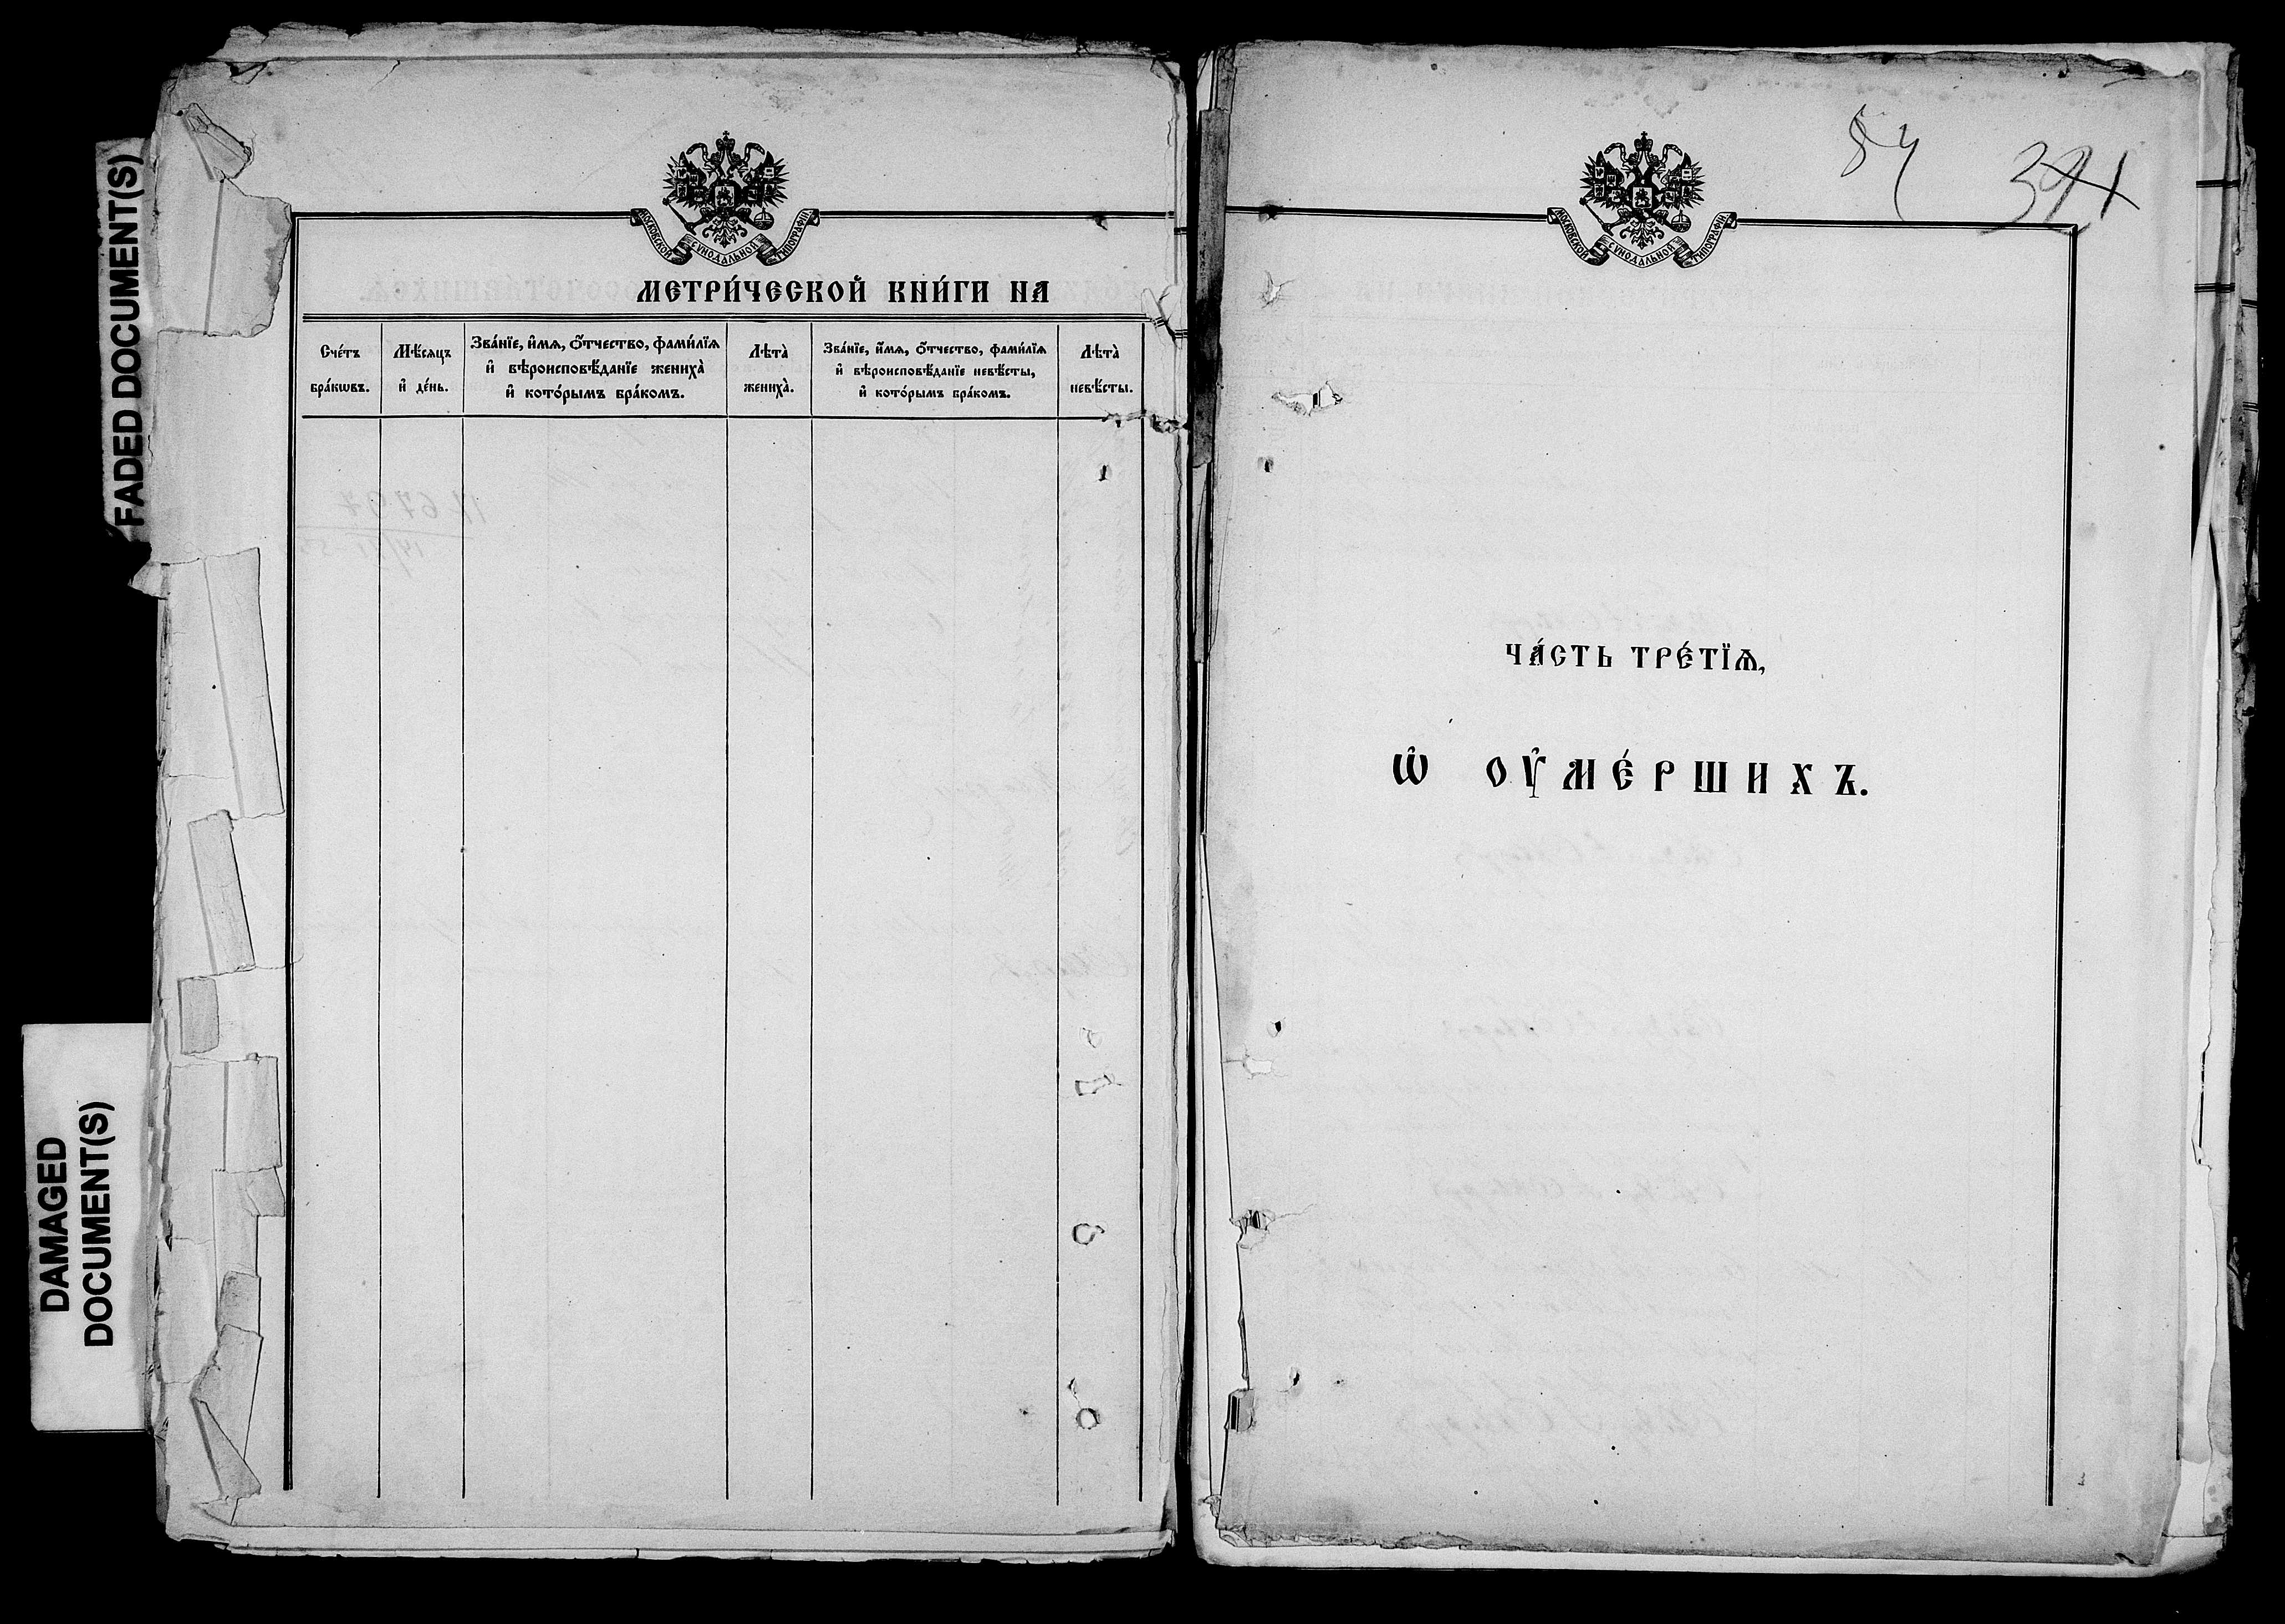 FADED DOCUMENT(S)
DAMAGED
DOCUMENT(S)
МОСКОВСКОЙ СУНОДАЛЬНОЙ ТИПОГРАФІИ
МЕТРИ́ЧЕСКОЙ КНИ́ГИ НА
Сче́тъ
бра́кѡвъ.
Мѣ́сѧцъ
и҆ де́нь.
Зва́нїе, и҆́мѧ, ѻ҆́тчество, фами́лїѧ
и҆ вѣроисповѣ́данїе жениха̀
и҆ кото́рымъ бра́комъ.
Лѣта̀
жениха̀.
Зва́нїе, и҆́мѧ, ѻ҆́тчество, фами́лїѧ
и҆ вѣроисповѣ́данїе невѣ́сты,
и҆ кото́рымъ бра́комъ.
Лѣта̀
невѣ́сты.
391
МОСКОВСКОЙ СУНОДАЛЬНОЙ ТИПОГРАФІИ
ЧА́СТЬ ТРЕ́ТЇѦ,
Ѡ҆ ОУ҆МЕ́РШИХЪ.